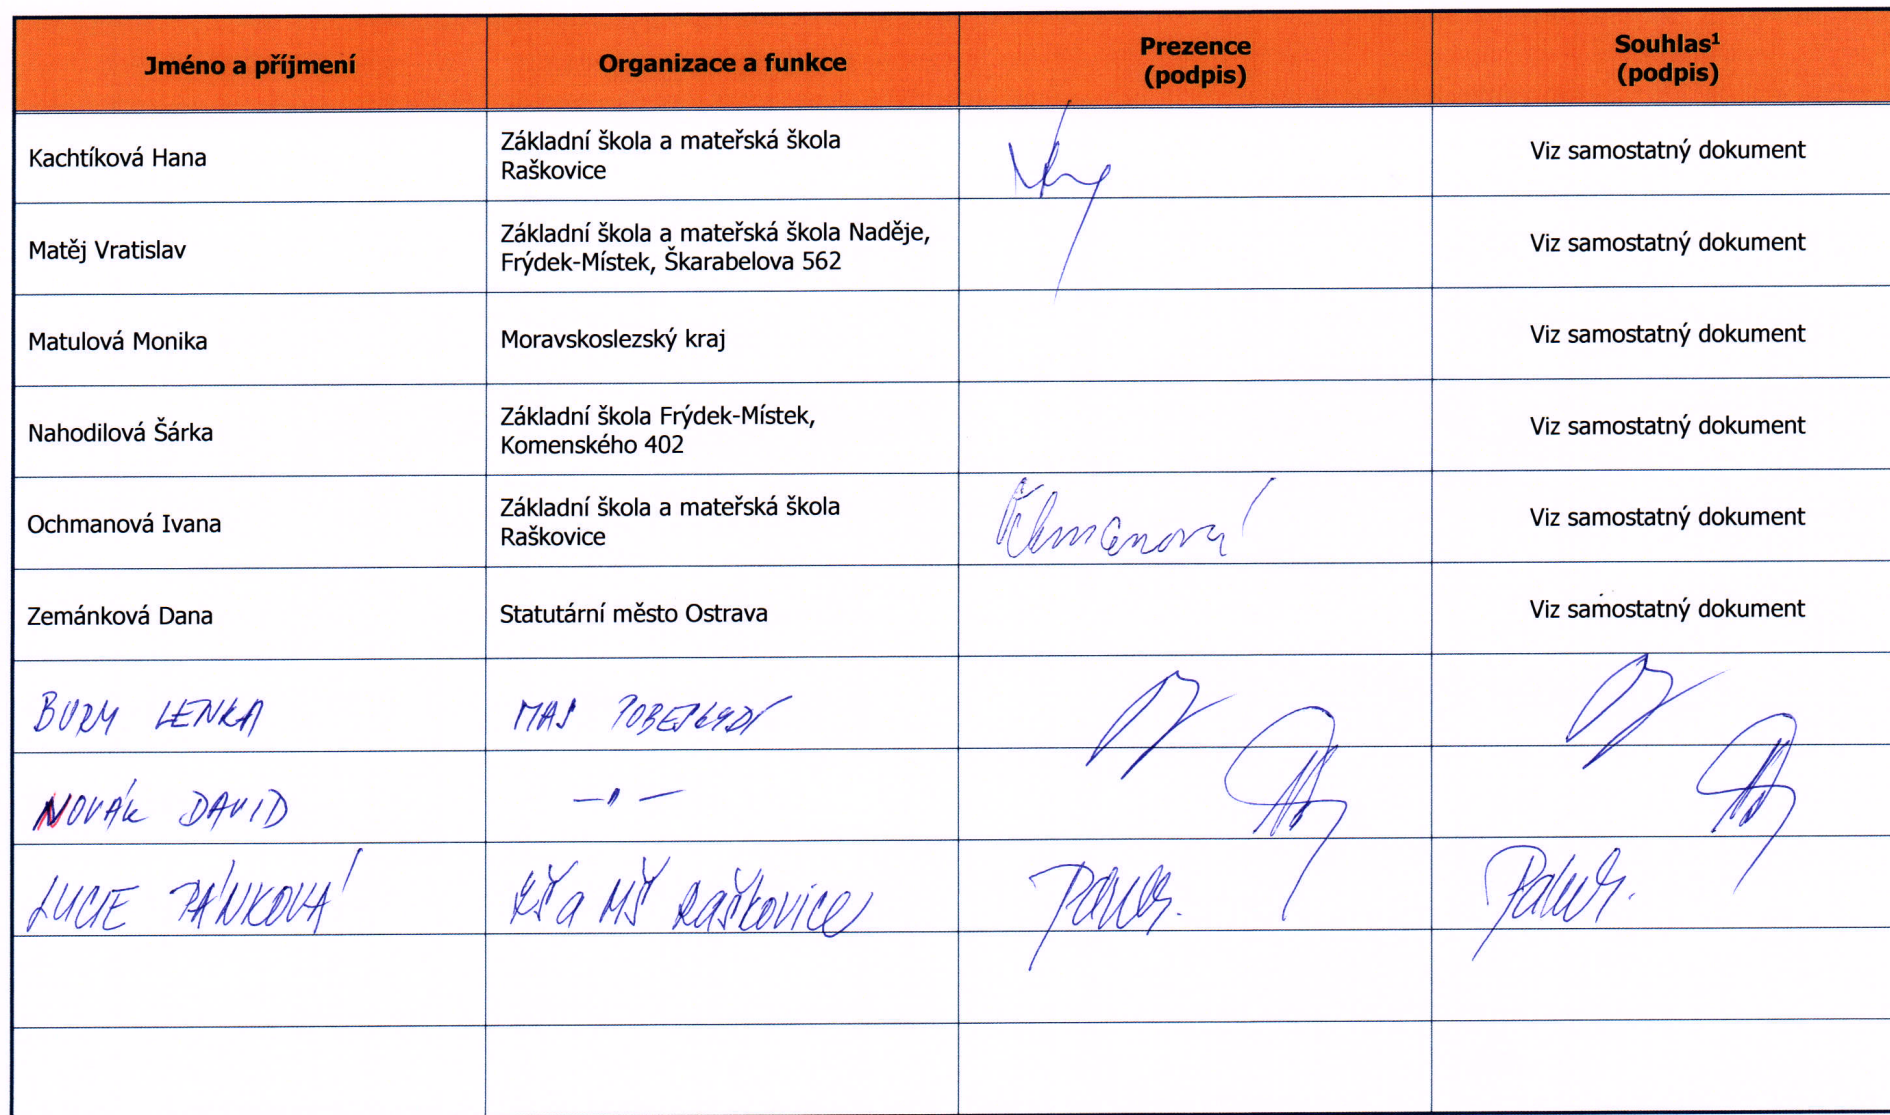 Jméno a příjmení
Organizace a funkce
Prezence
(podpis)
Souhlas¹
(podpis)
Kachtíková Hana
Základní škola a mateřská škola
Raškovice
Viz samostatný dokument
Matěj Vratislav
Základní škola a mateřská škola Naděje,
Frýdek-Místek, Škarabelova 562
Viz samostatný dokument
Matulová Monika
Moravskoslezský kraj
Viz samostatný dokument
Nahodilová Šárka
Základní škola Frýdek-Místek,
Komenského 402
Viz samostatný dokument
Ochmanová Ivana
Základní škola a mateřská škola
Raškovice
Ochmanová
Viz samostatný dokument
Zemánková Dana
Statutární město Ostrava
Viz samostatný dokument
BURY LENKA
MAS POBESKYDÍ
NOVÁK DAVID
—"—
LUCIE PÁNKOVÁ
ZŠ a MŠ Raškovice